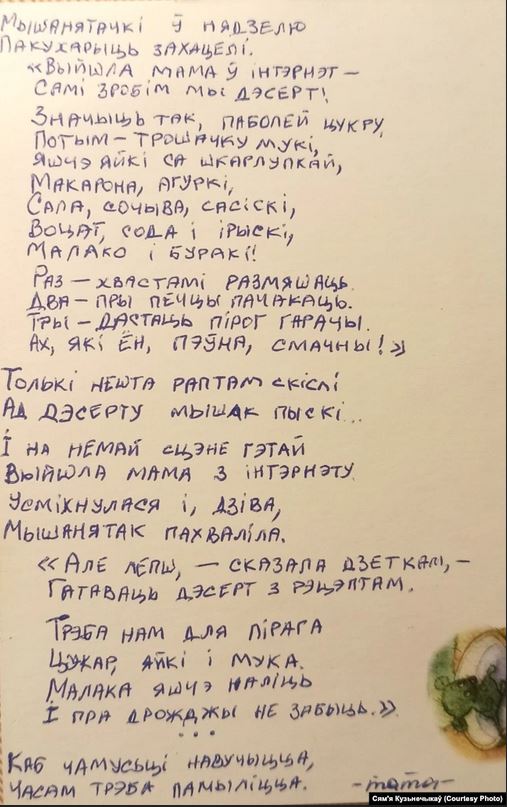 Мышанятачкі ў нядзелю
Пакухарыць захацелі.
«Выйшла мама ў інтэрнэт –
Самі зробім мы дэсерт!
Значыць так, паболей цукру,
Потым – трошачку мукі,
Яшчэ яйкі са шкарлупкай,
Макарона, агуркі,
Сала, сочыва, сасіскі,
Воцат, сода і ірыскі,
Малако і буракі!
Раз – хвастамі размяшаць.
Два – пры печцы пачакаць.
Тры – дастаць пірог гарачы.
Ах, які ён, пэўна, смачны!»
Толькі нешта раптам скіслі
Ад дэсерту мышак пыскі...
І на немай сцэне гэтай
Выйшла мама з інтэрнэту.
Усміхнулася і, дзіва,
Мышанятак пахваліла.
«Але лепш, – сказала дзеткам, –
Гатаваць дэсерт з рэцэптам.
Трэба нам для пірага
Цукар, яйкі і мука.
Малака яшчэ наліць
І пра дрожджы не забыць.»
...
Каб чамусьці навучыцца,
Часам трэба памыліцца.
-тата-
Сям'я Кузьнечыкаў (Courtesy Photo)